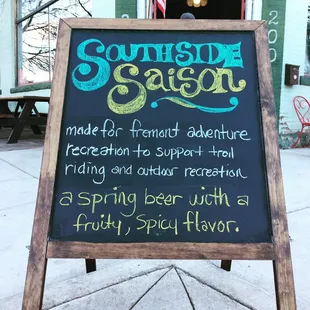 SOUTHSIDE
SAISON
made for fremont adventure
recreation to support trail
riding and outdoor recreation
a spring beer with a
fruity, spicy flavor.